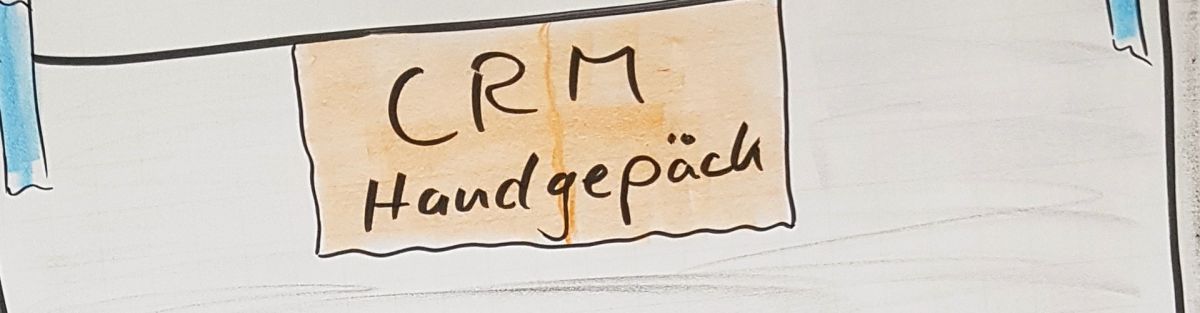 CRM
Handgepäck